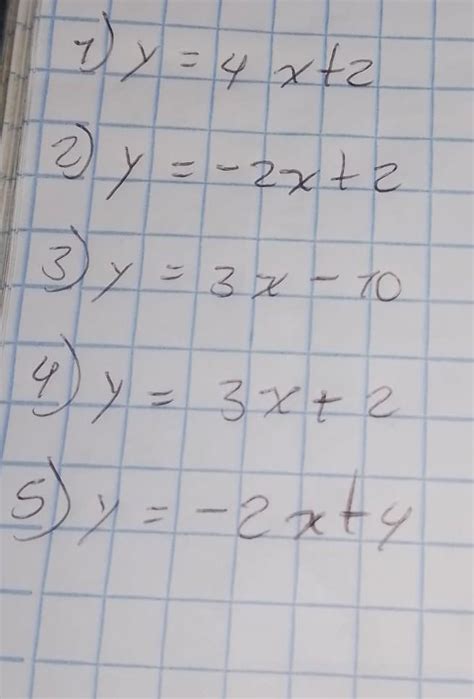 1) y = 4x+2
2) y = -2x+2
3) y = 3x-10
4) y = 3x+2
5) y = -2x+4